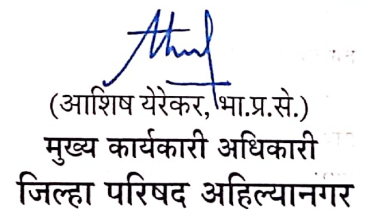 (आशिष येरेकर, भा.प्र.से.)
मुख्य कार्यकारी अधिकारी
जिल्हा परिषद अहिल्यानगर